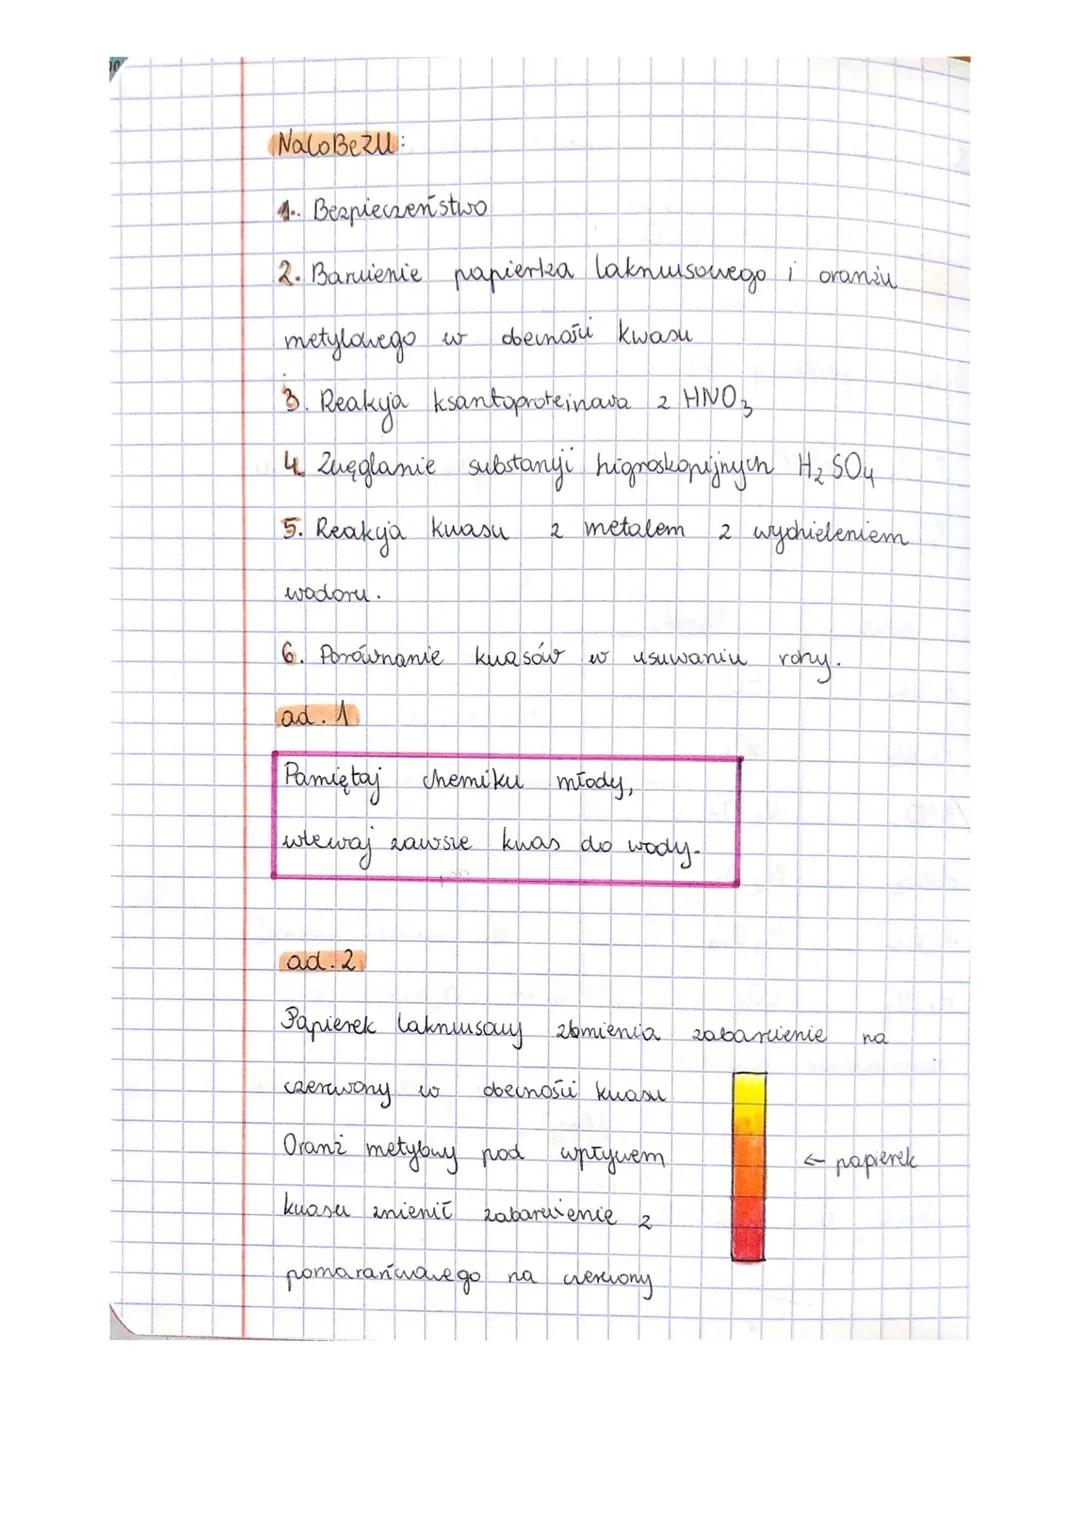 NaCoBeZU:
1. Bezpieczeństwo
2. Barwienie papierka lakmusowego i oranżu
metylowego w obecności kwasu
3. Reakcja ksantoproteinowa z HNO3
4. Zwęglanie substancji higroskopijnych H2SO4
5. Reakcja kwasu z metalem z wydzieleniem
wodoru.
6. Porównanie kwasów w usuwaniu rdzy.
ad. 1
Pamiętaj chemiku młody,
wlewaj zawsze kwas do wody.
ad. 2
Papierek lakmusowy zmienia zabarwienie na
czerwony w obecności kwasu
Oranż metylowy pod wpływem
← papierek
kwasu zmienił zabarwienie z
pomarańczowego na czerwony